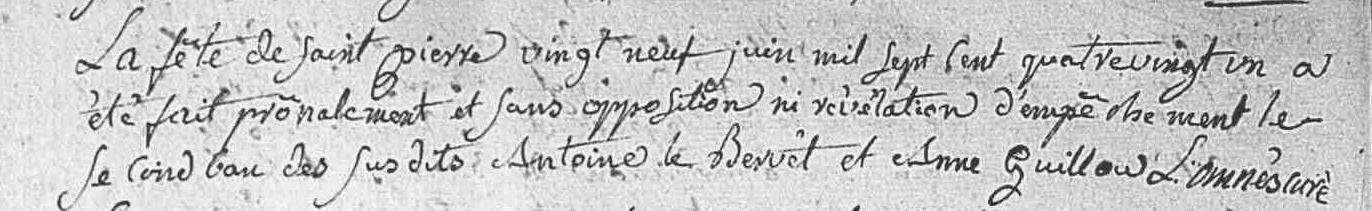 La fête de saint pierre vingt neuf juin mil sept cent quatrevingt un a
été fait prônalement et sans opposition ni révélation d'empêchement le
second ban des susdits Antoine le Bervèt et Anne Guillou L: omnès curé